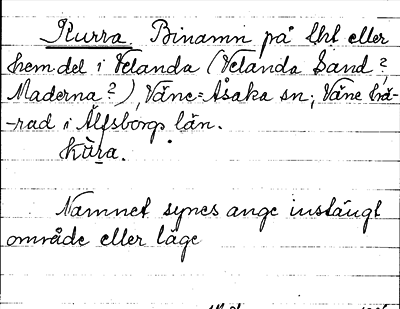 Kurra. Binamn på lht eller
hemdel i Velanda (Velanda Sand?,
Maderna?), Väne-Åsaka sn; Väne hä-
-rad i Älfsborgs län.
Kùra.
Namnet synes ange instängt
område eller läge